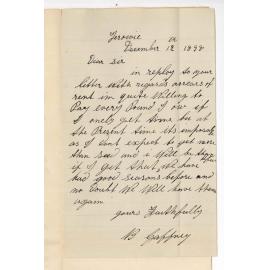 Terowie
December 12 1898
Dear Sir
in reploy to your
letter with regards arrears of
rent im quite Willing to
Pay every Pound I ow if
I onely get time but at
the Present time its imposable
as I dont expect to get more
than seed and i Will be
if I get that. We have
had good seasons before and
no doubt We Will have them
again
yours Faithfully
B Gaffney